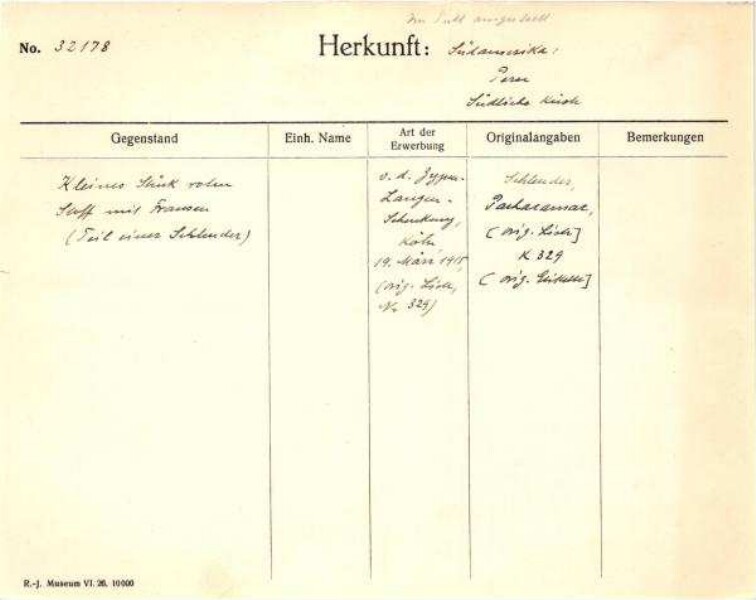 Im Pult ausgestellt
No. 32178
Herkunft: Südamerika:
Peru
Südliche Küste
Gegenstand
Einh. Name
Art der Erwerbung
Originalangaben
Bemerkungen
Kleines Stück roten
Stoff mit Fransen
(Teil einer Schleuder)
v. d. Zypen-
Langen-
Schenkung,
Köln
19. März 1915
(orig. Liste,
Nr. 329)
Schleuder,
Pacharamar,
(orig. Liste]
K 329
(orig. Etikette]
R.-J. Museum VI. 26. 10000